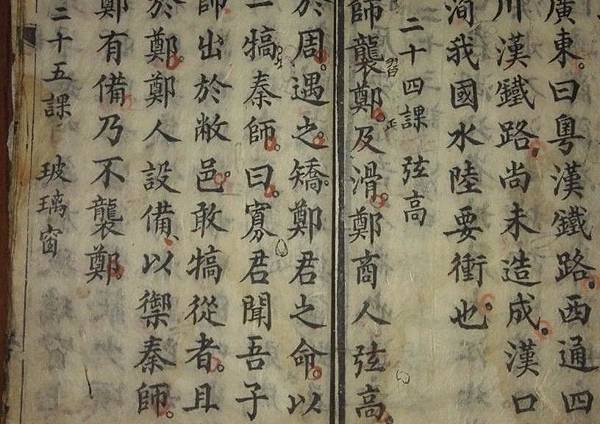 廣東。曰粵漢鐵路。西通四
川漢鐵路。尚未造成。漢口
洵我國水陸要衝也。
二十四課 弦高
師襲鄭。及滑。鄭商人弦高。
習 正
於周。遇之。矯鄭君之命。以
一犒秦師。曰。寡君聞吾子
師出於敝邑。敢犒從者。且
於鄭。鄭人設備、以禦秦師。
鄭有備。乃不襲鄭。
二十五課 玻璃窗